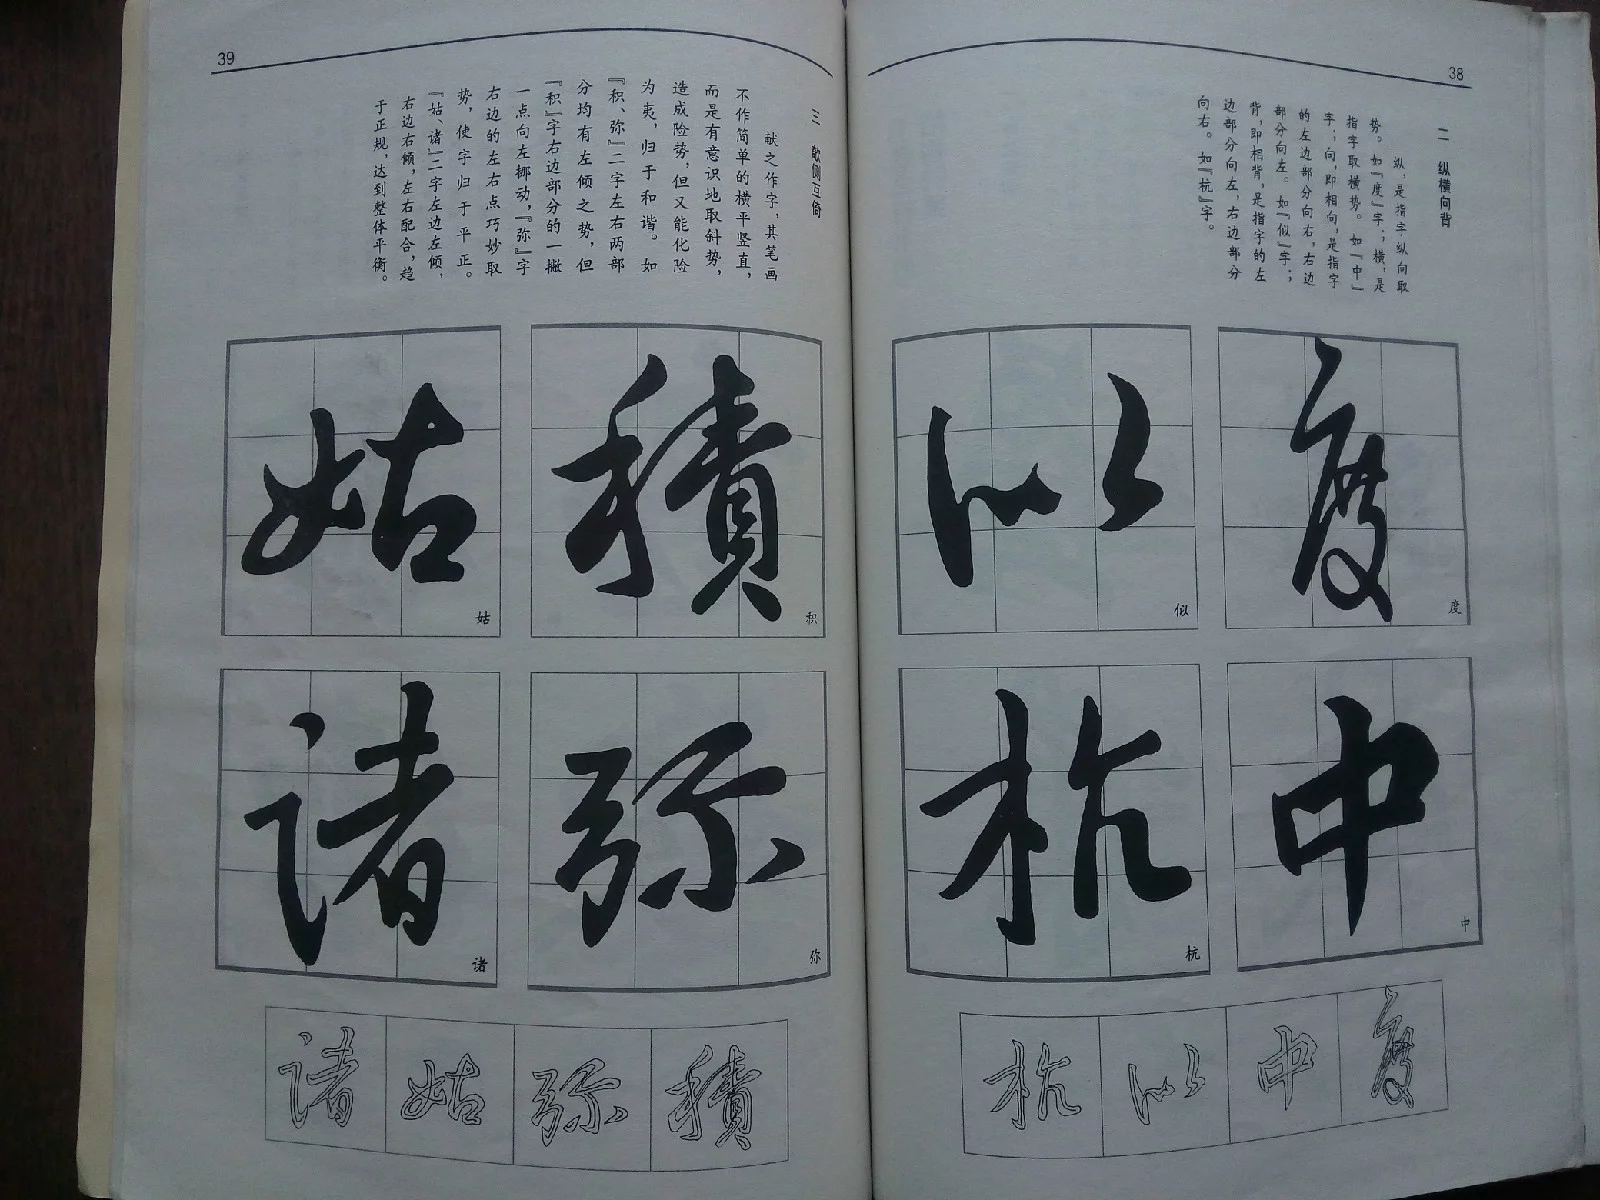 38
二 纵横向背
纵，是指字纵向取
势。如『度』字；横，是
指字取横势。如『中』
字；向，即相向，是指字
的左边部分向右，右边
部分向左。如『似』字；
背，即相背，是指字的左
边部分向左，右边部分
向右。如『杭』字。
度
度
中
中
似
似
杭
杭
度
中
似
杭
39
三 欹侧互倚
献之作字，其笔画
不作简单的横平竖直，
而是有意识地取斜势，
造成险势，但又能化险
为夷，归于和谐。如
『积、弥』二字左右两部
分均有左倾之势，但
『积』字右边部分的一撇
一点向左挪动，『弥』字
右边的左右点巧妙取
势，使字归于平正。
『姑、诸』二字左边左倾，
右边右倾，左右配合，趋
于正规，达到整体平衡。
積
积
弥
弥
姑
姑
诸
诸
積
弥
姑
诸